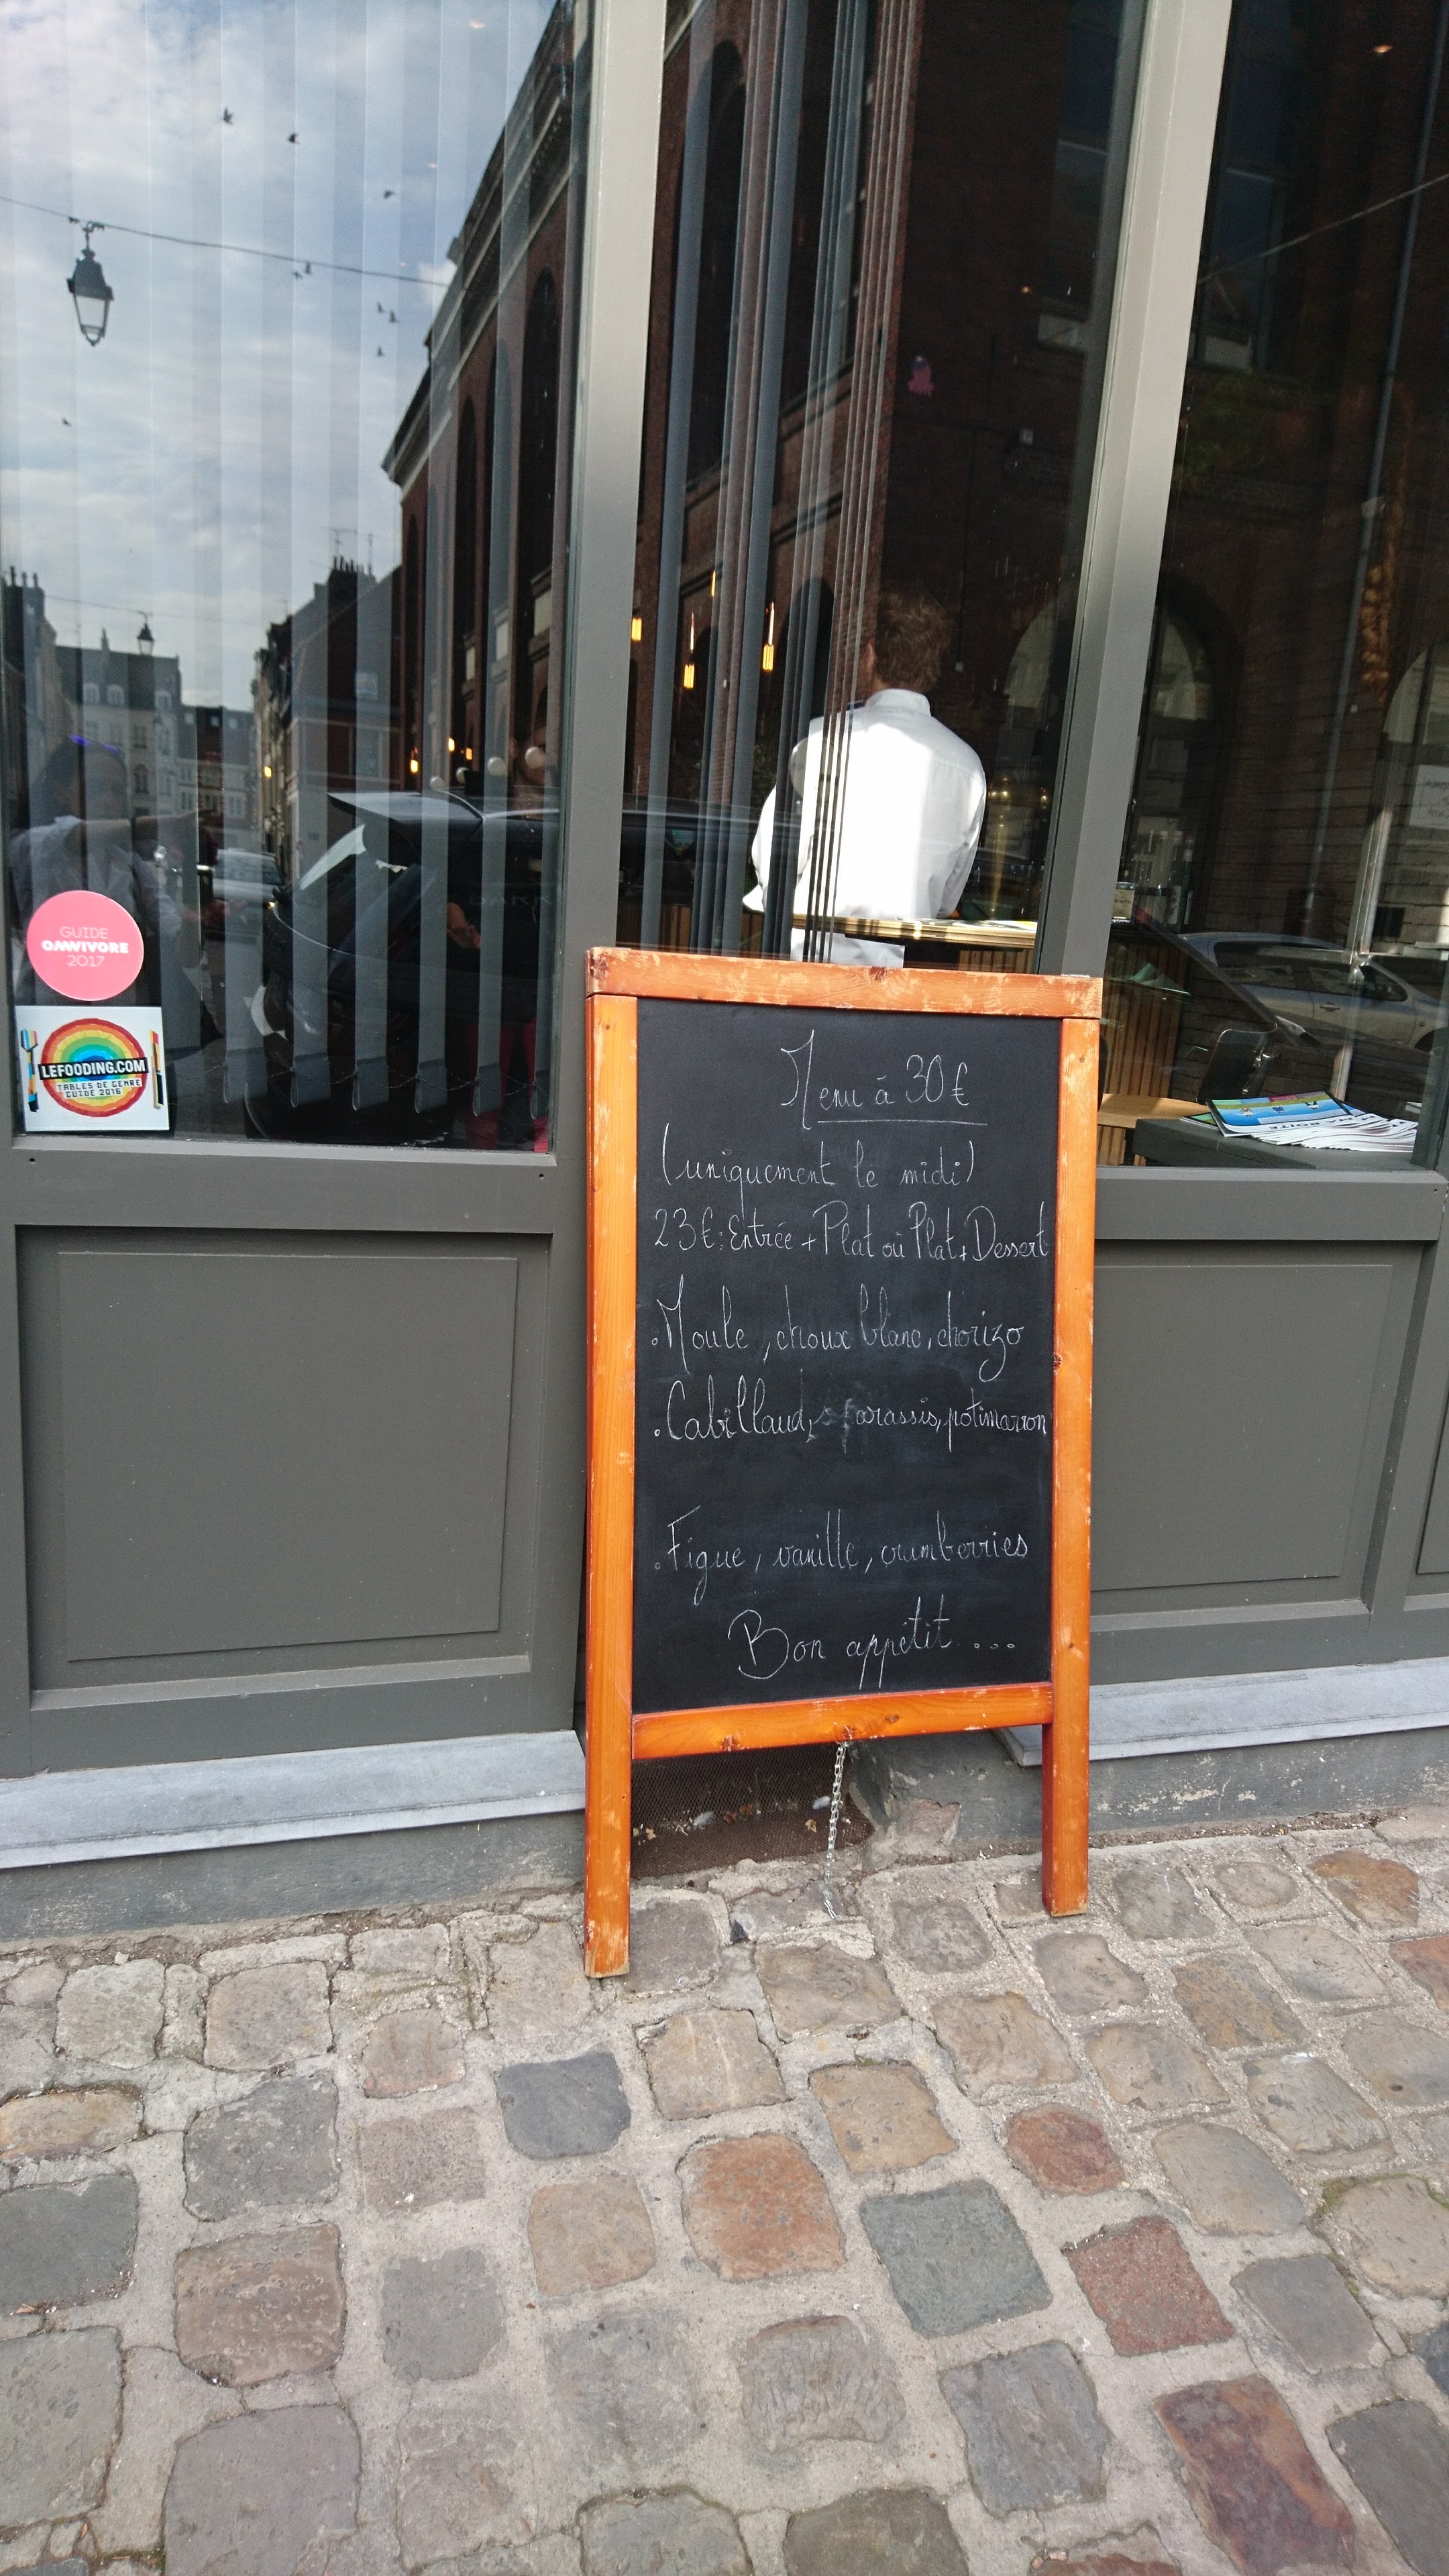 GUIDE
OMNIVORE
2017
LEFOODING.COM
TABLES DE GENRE
GUIDE 2016
Menu á 30€
(uniquement le midi)
23€: Entrée + Plat ou Plat + Dessert
. Moule, choux blanc, chorizo
. Cabillaud, parassis, potimarron
. Figue, vanille, cramberries
Bon appétit ...